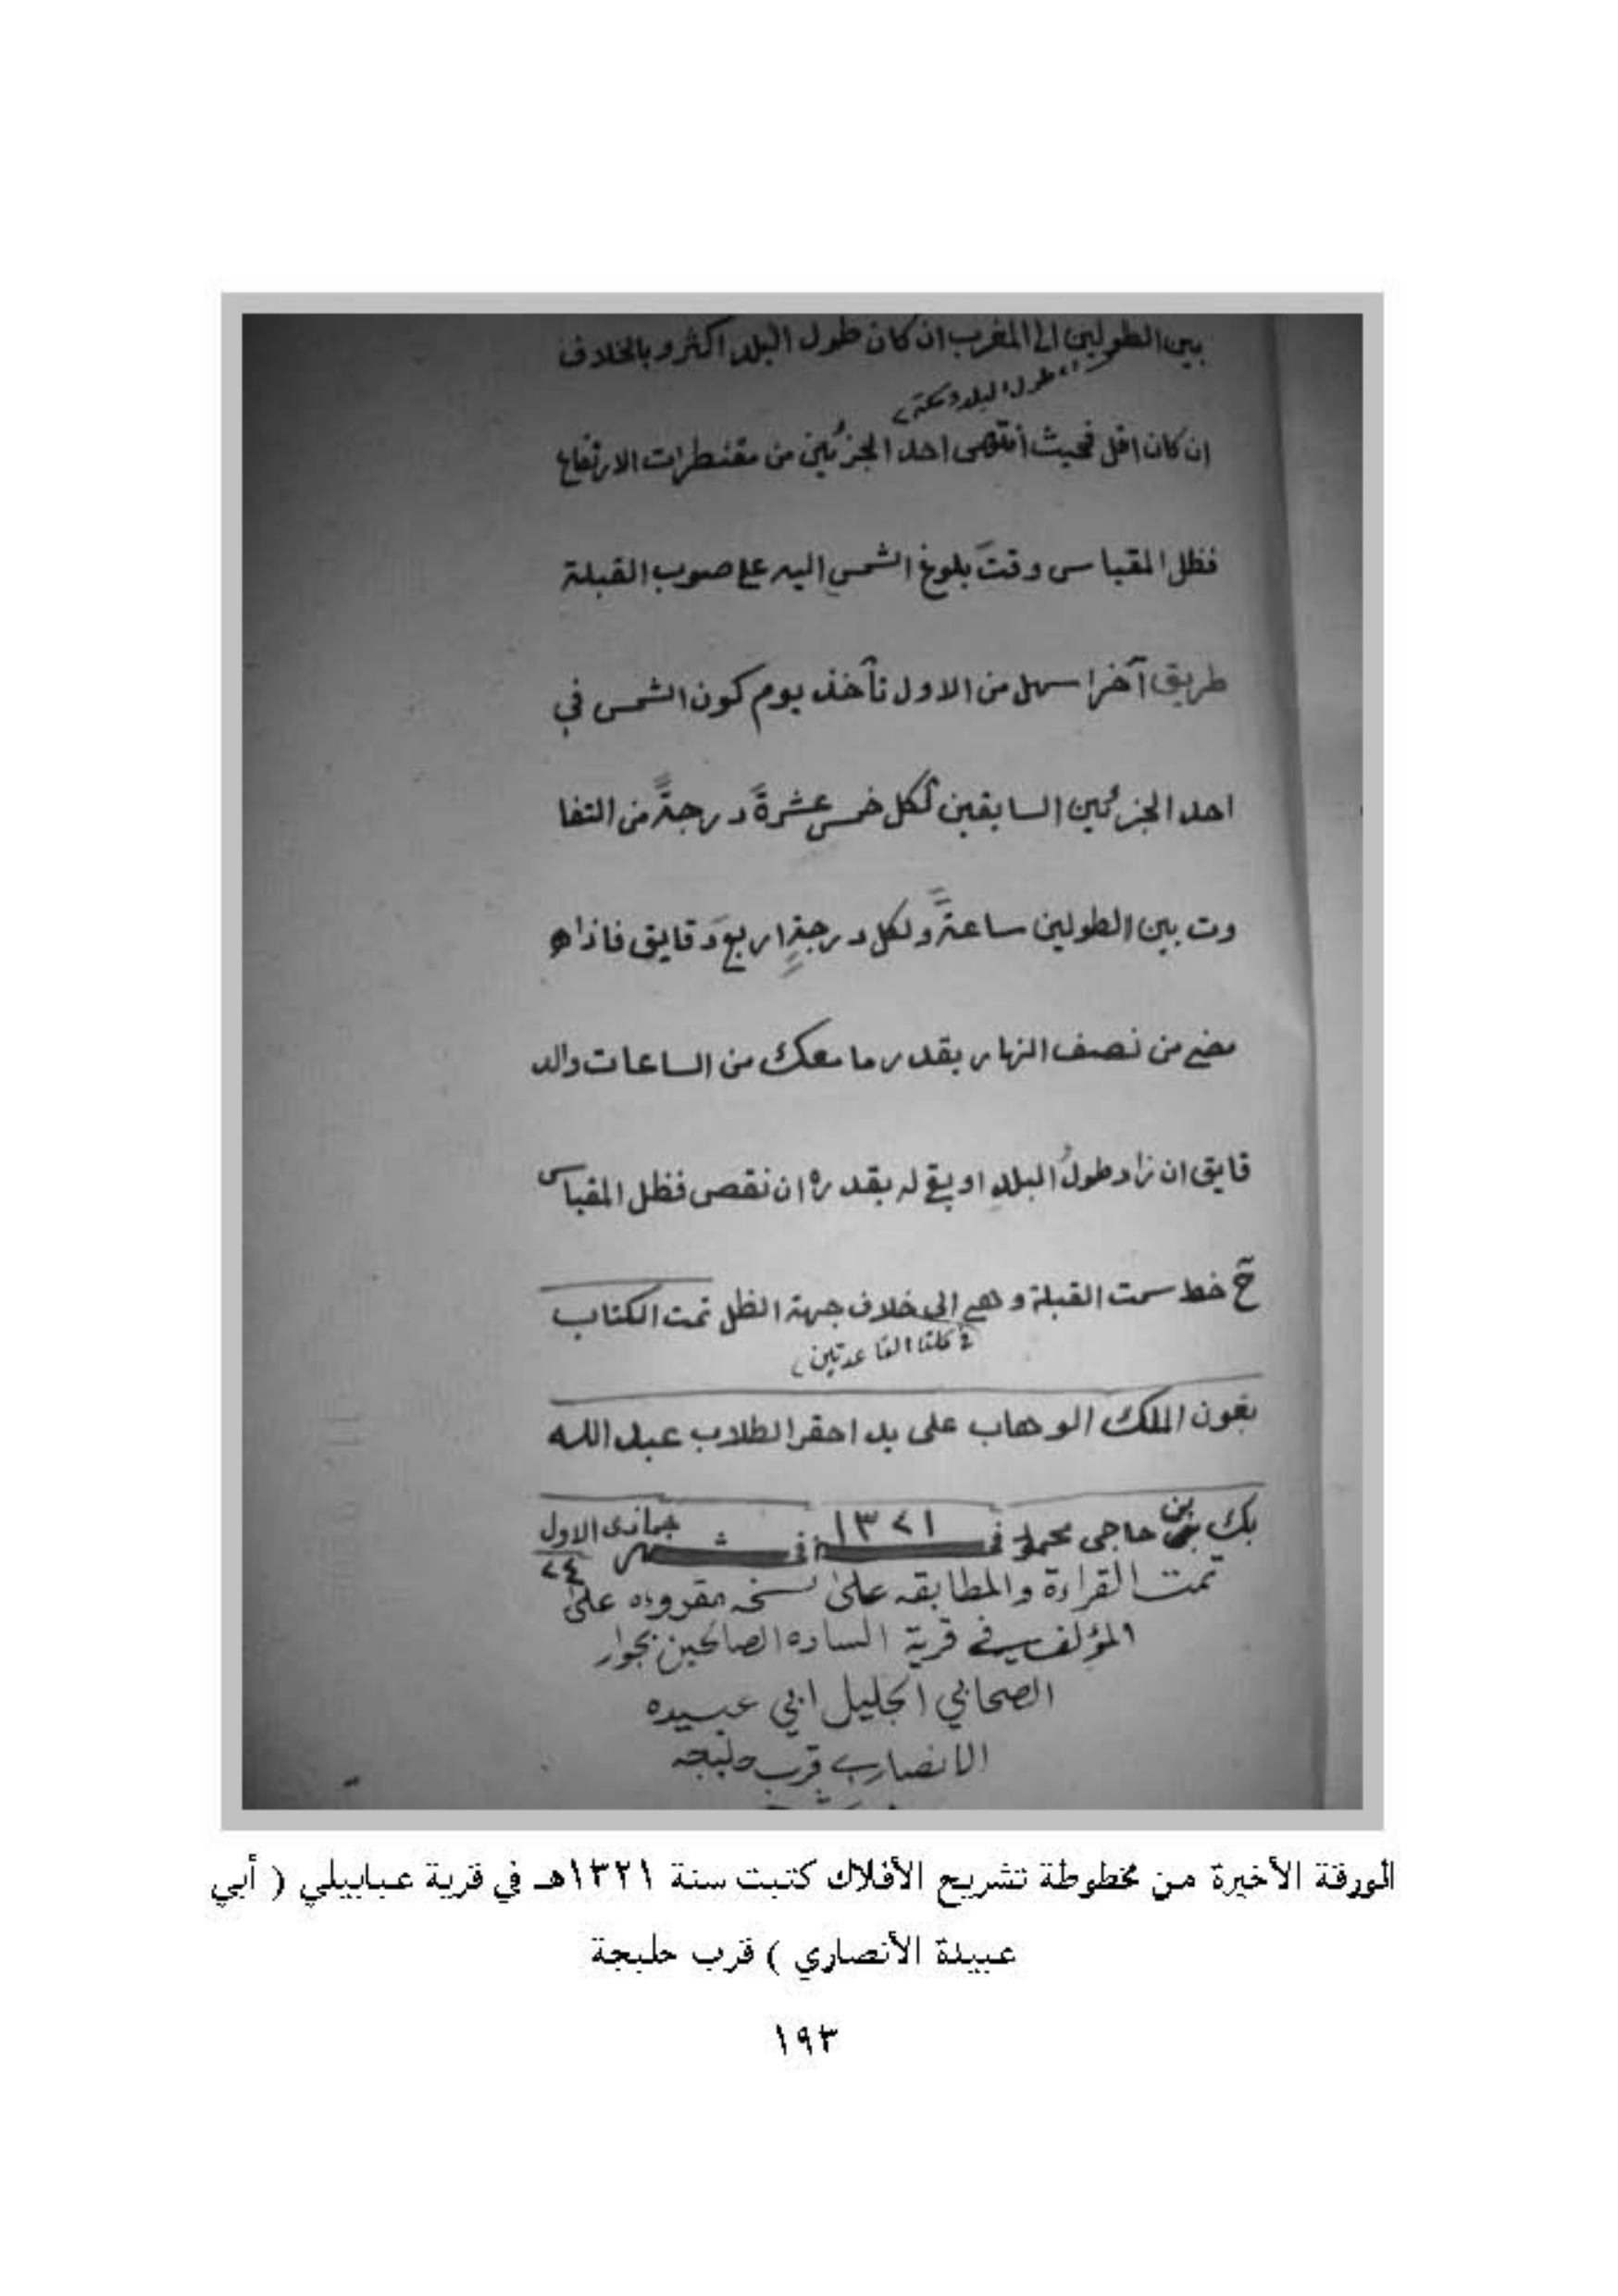 بين الطولين الى المغرب ان كان طول البلد اكثر و بالخلاف
طول البلد ومكة
ان كان اقل فحيث أنتهى احد الجزئين من مقنطرات الارتفاع
فظل المقياس وقت بلوغ الشمس اليه على صوب القبلة
طريق آخر اسهل من الاول تأخذ يوم كون الشمس في
احد الجزئين السابقين لكل خمس عشرةَ درجةً من التفا
وت بين الطولين ساعةً ولكل درجةٍ اربع دقايق فاذا
مضى من نصف النهار بقدر ما معك من الساعات والد
قايق ان زاد طولُ البلد او بقى له بقدره ان نقص فظل المقياس
ح خط سمت القبلة و هي الى خلاف جهة الظل تمت الكتاب
في كلتا القاعدتين
بعون الملك الوهاب على يد احقر الطلاب عبد الله
بك بن حاجى محمد في ١٣٢١ في شهر جمادى الاول ٢٤
تمت القراءة والمطابقه على نسخه مقروءه على
المؤلف في قرية الساده الصالحين بجوار
الصحابي الجليل ابي عبيده
الانصاري قرب حلبجه
الورقة الأخيرة من مخطوطة تشريح الأفلاك كتبت سنة ١٣٢١هـ في قرية عبابيلي ( أبي
عبيدة الأنصاري ) قرب حلبجة
١٩٣